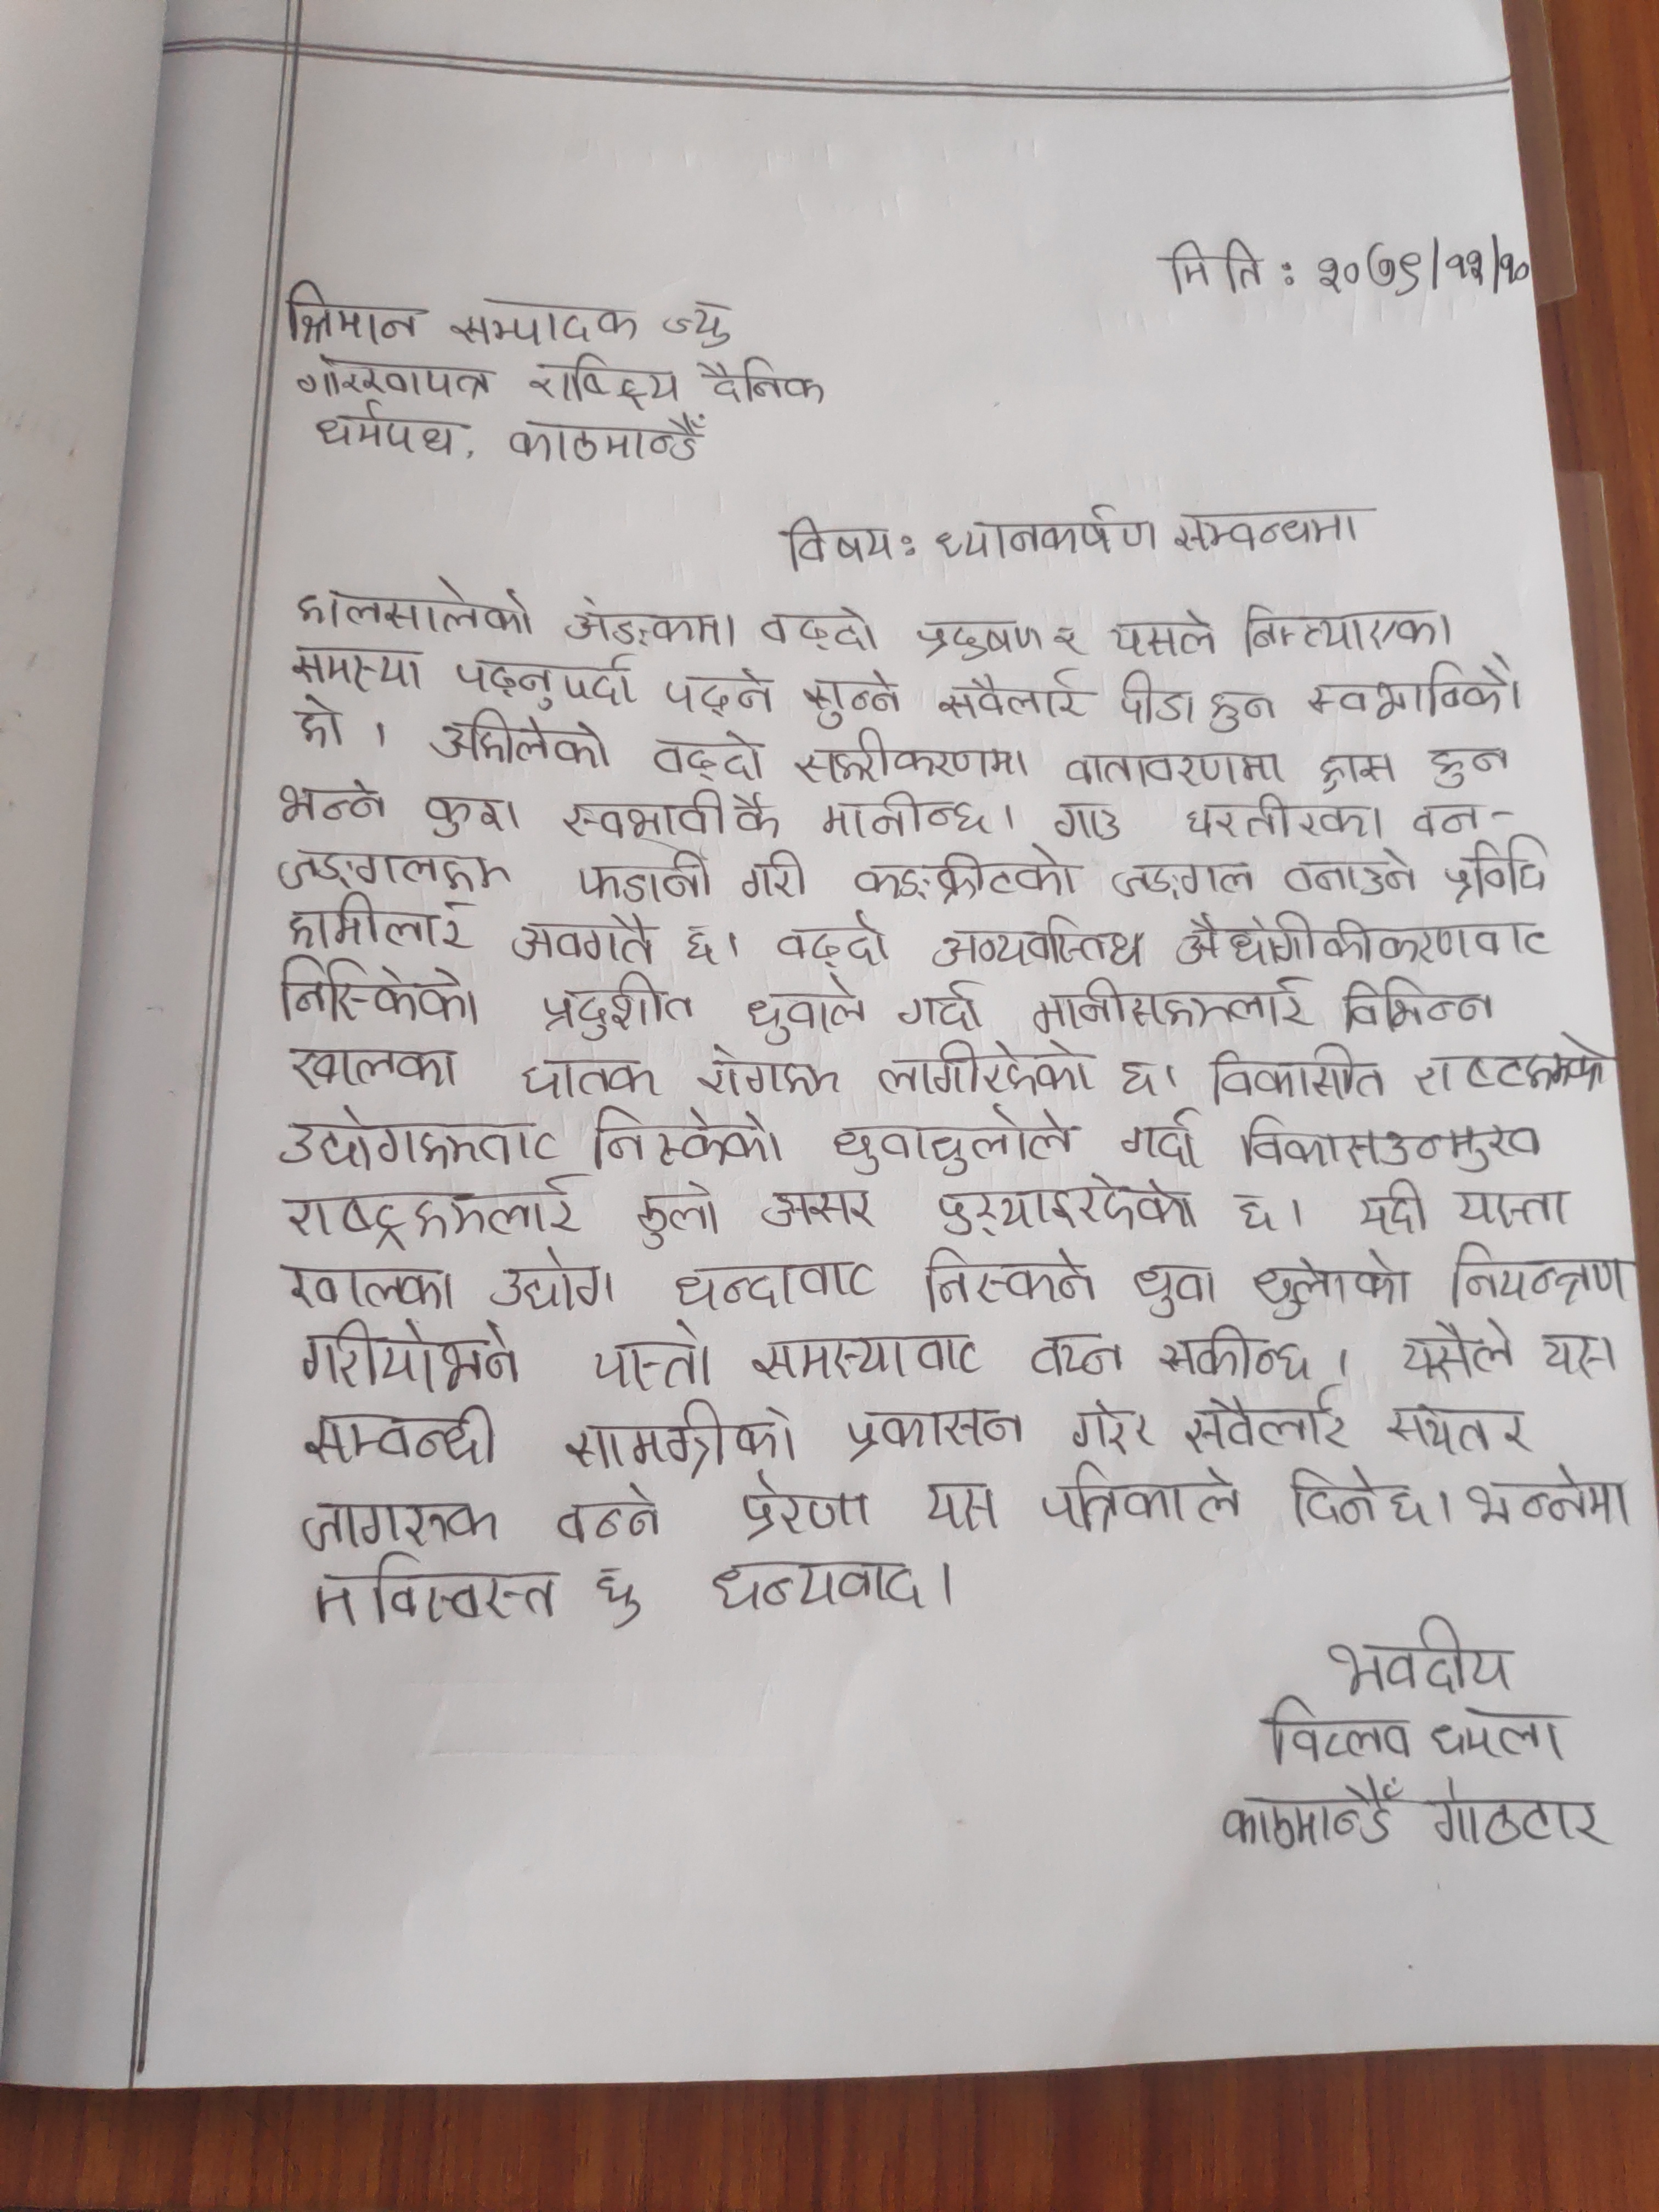 मिति : २०७९/११/१०
श्रिमान सम्पादक ज्यु
गोरखापत्र राष्ट्रिय दैनिक
धर्मपथ, काठमान्डौँ
विषय: ध्यानकर्षण सम्वन्धमा
हालसालेको अंङ्कमा वढ्दो प्रदुषण र यसले निम्त्याएका
समस्या पढ्नुपर्दा पढ्ने सुन्ने सवैलाई पीडा हुन स्वभाविकै
हो । अहीलेको वढ्दो सहरीकरणमा वातावरणमा ह्रास हुन
भन्ने कुरा स्वभावीकै मानीन्छ। गाउ घरतीरका वन-
जङ्गलहरू फडानी गरी कङ्क्रीटको जङ्गल वनाउने प्रविधि
हामीलाई अवगतै छ। वढ्दो अव्यवस्तिथ औधोगीकीकरणवाट
निस्किेको प्रदुशीत धुवाले गर्दा मानीसहरूलाई विभिन्न
खालका घातक रोगहरू लागीरहेको छ। विकासीत राष्टहरूको
उद्योगहरूवाट निस्केको धुवाधुलोले गर्दा विकासउन्मुख
राष्ट्रहरूलाई ठुलो असर पुर्‍याइरहेको छ। यदी यास्ता
खालका उद्योग धन्दावाट निस्कने धुवा धुलोको नियन्त्रण
गरीयोभने यास्तो समस्यावाट वच्न सकीन्छ । यसैले यस
सम्वन्धी सामग्रीको प्रकासन गरेर सवैलाई सचेत र
जागरुक वन्ने प्रेरणा यस पत्रिकाले दिनेछ। भन्नेमा
म विस्वस्त छु धन्यवाद।
भवदीय
विप्लव धमला
काठमान्डौँ गोठटार